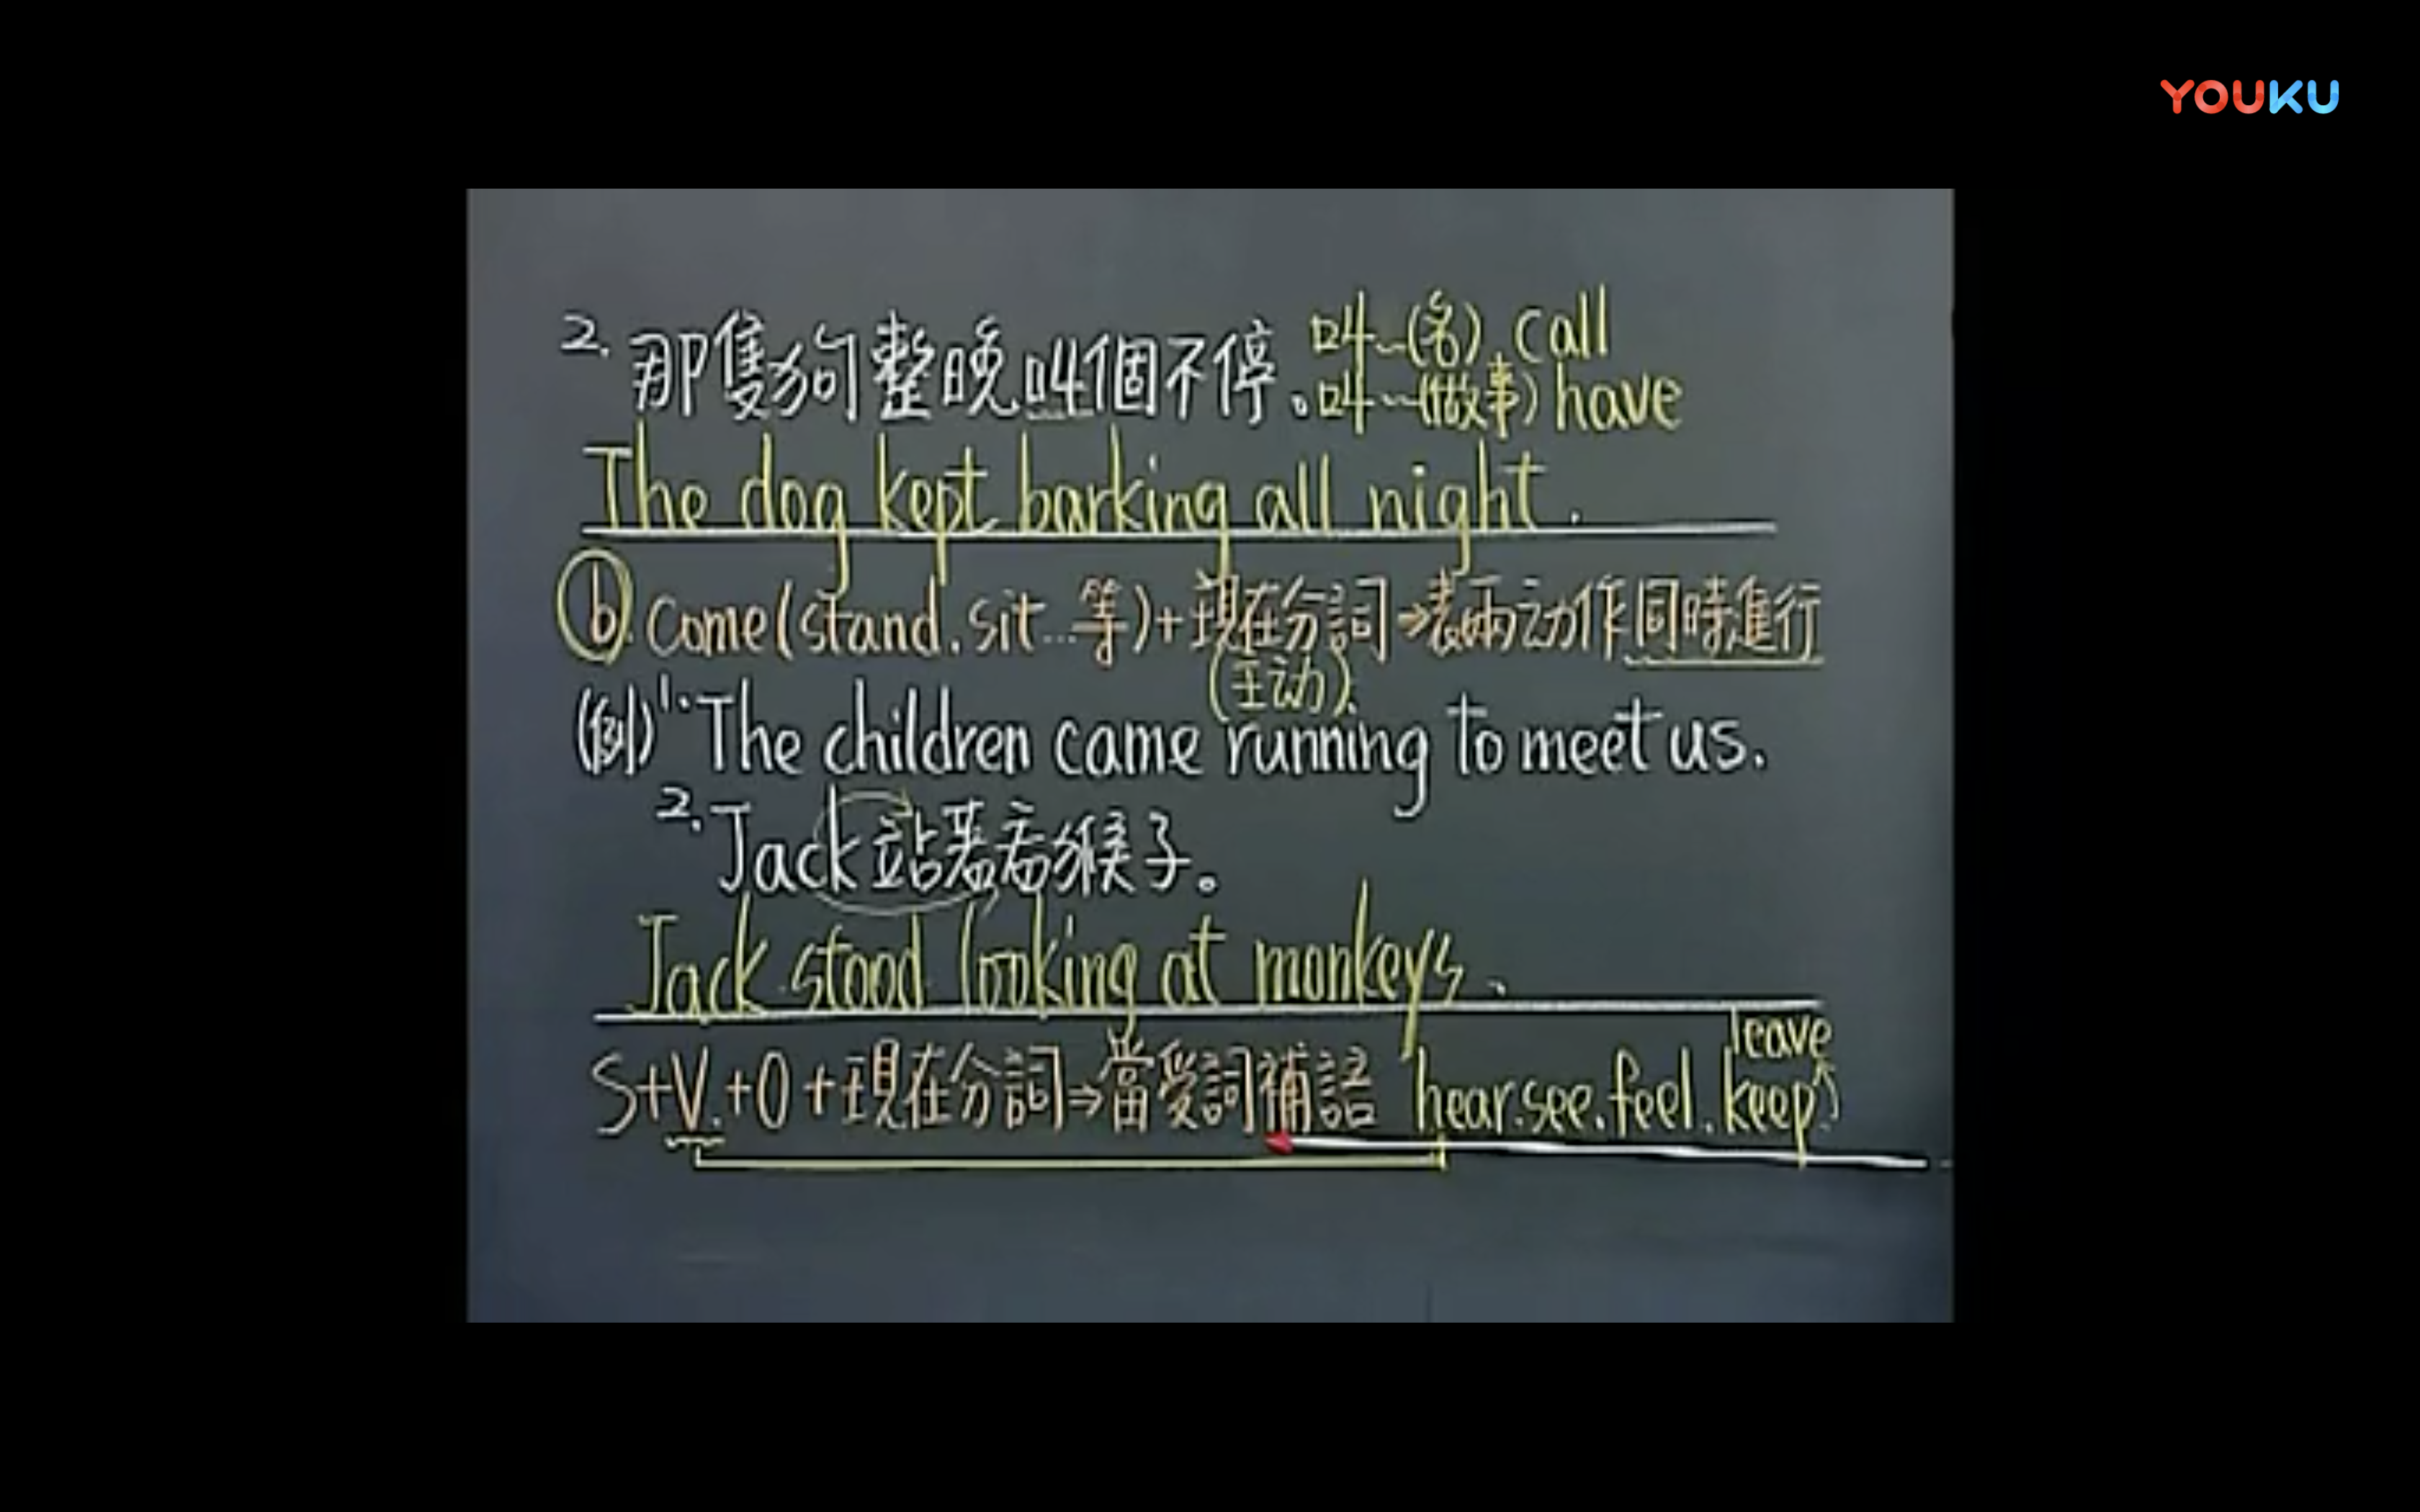 YOUKU
2. 那隻狗整晚叫個不停。叫~(名) call
叫~(做事) have
The dog kept barking all night.
b. Come (stand. sit...等)+現在分詞⇒表兩动作同時進行
(主动)
(例) 1. The children came running to meet us.
2. Jack站著看猴子。
Jack stood looking at monkeys.
leave
S+V.+O+現在分詞⇒當受詞補語 hear.see.feel.keep